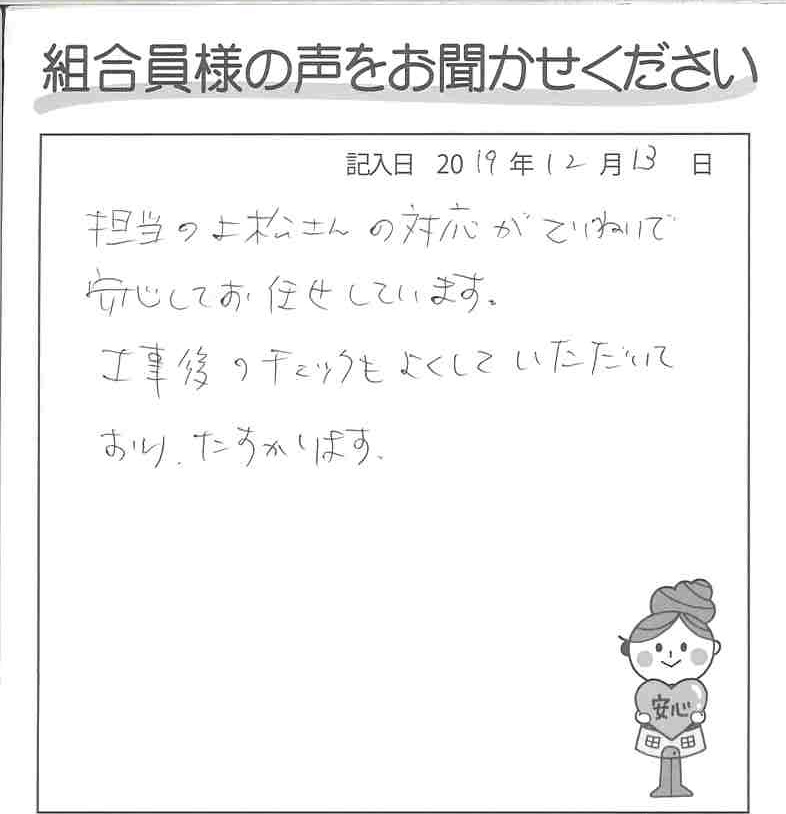 組合員様の声をお聞かせください
記入日 2019年12月13日
担当の上松さんの対応がていねいで
安心してお任せしています。
工事後のチェックもよくしていただいて
おり、たすかります。
安心